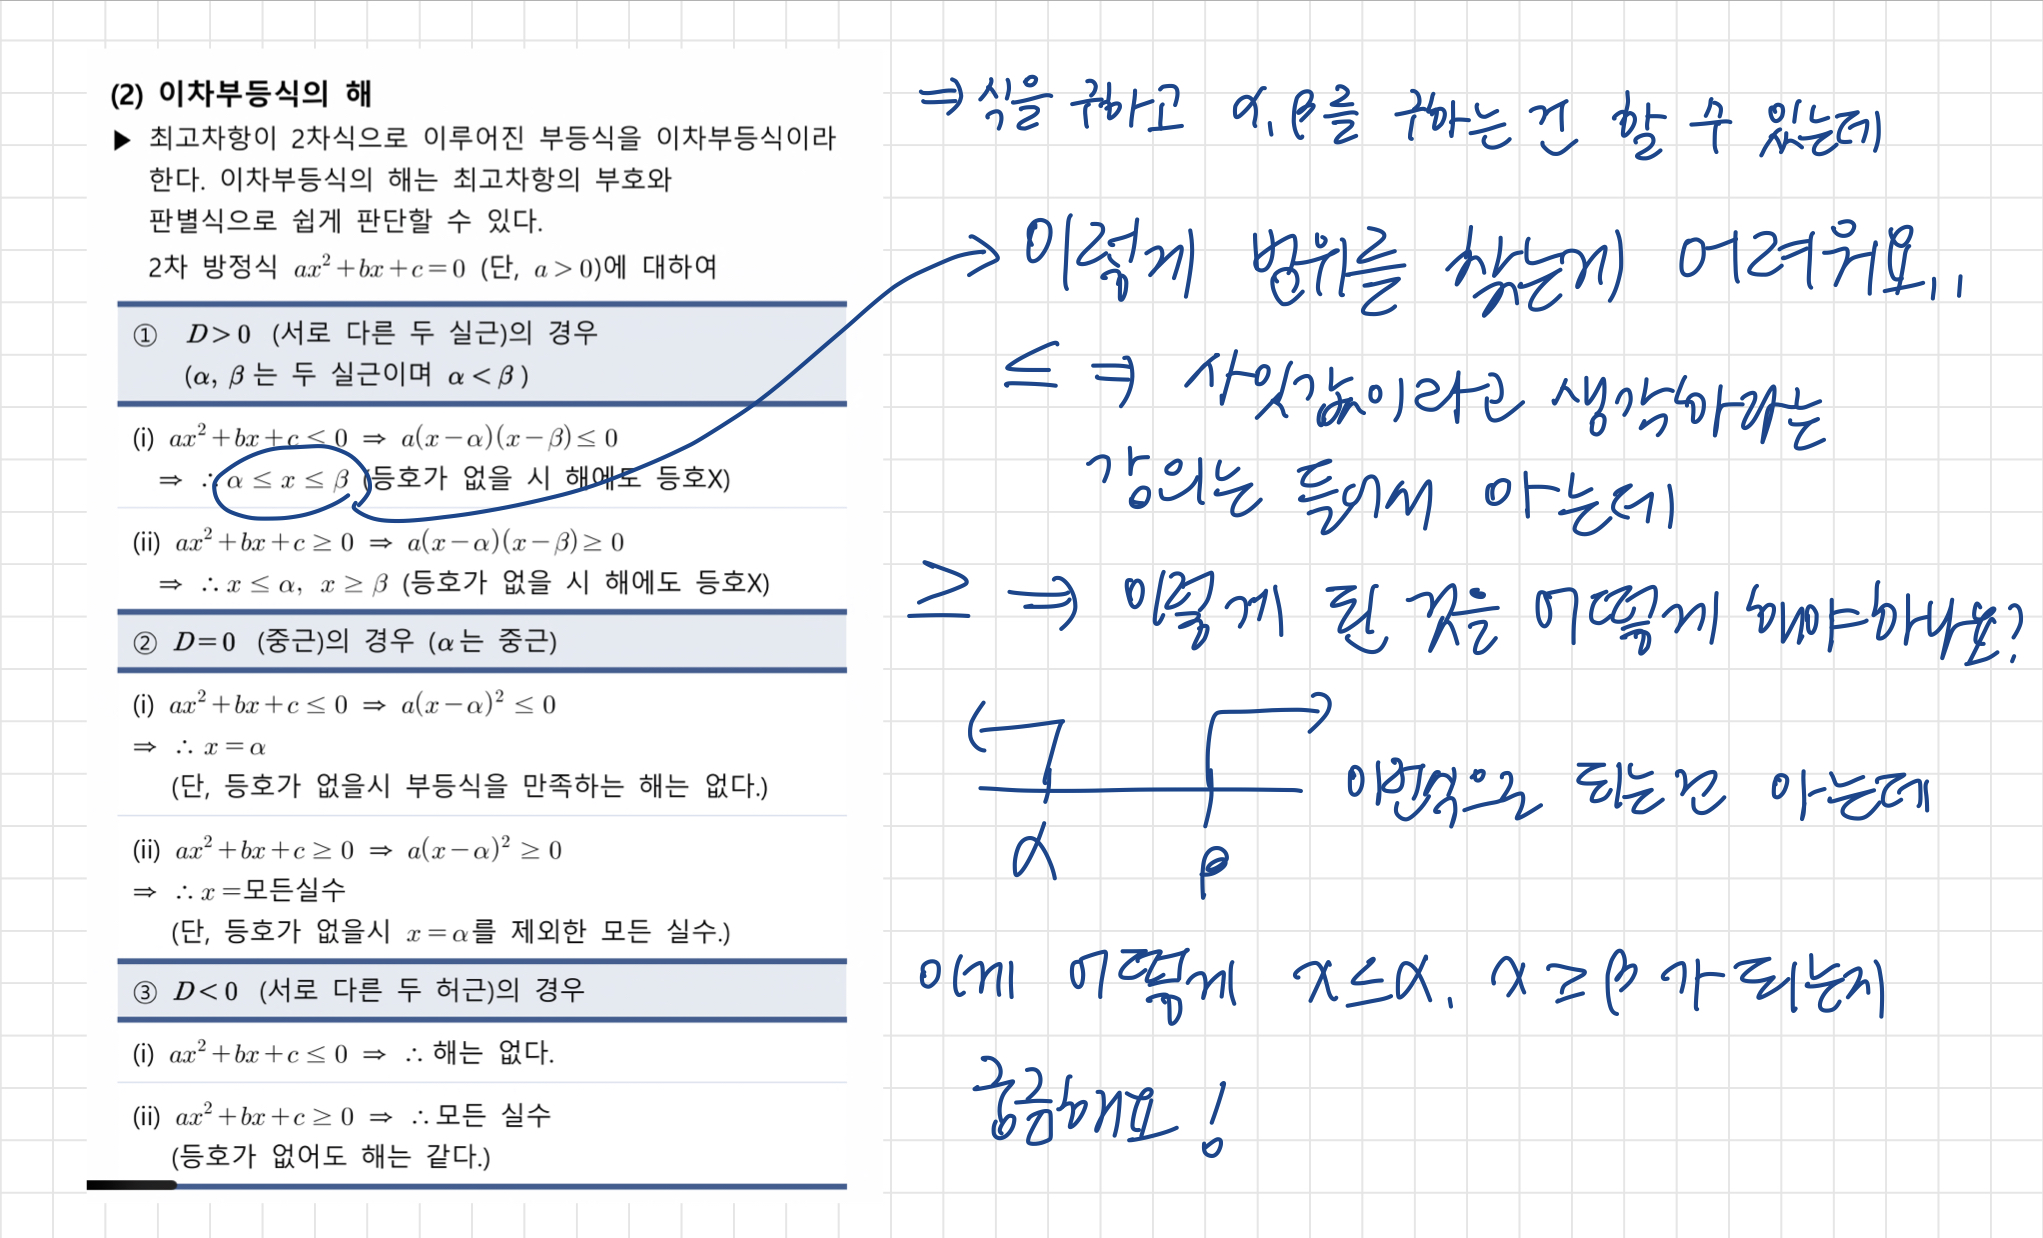 (2) 이차부등식의 해
▶ 최고차항이 2차식으로 이루어진 부등식을 이차부등식이라
한다. 이차부등식의 해는 최고차항의 부호와
판별식으로 쉽게 판단할 수 있다.
2차 방정식 ax²+bx+c=0 (단, a>0)에 대하여
① D>0 (서로 다른 두 실근)의 경우
(α, β는 두 실근이며 α<β)
(i) ax²+bx+c≤0 ⇒ a(x-α)(x-β)≤0
⇒ ∴ α≤x≤β (등호가 없을 시 해에도 등호X)
(ii) ax²+bx+c≥0 ⇒ a(x-α)(x-β)≥0
⇒ ∴x≤α, x≥β (등호가 없을 시 해에도 등호X)
② D=0 (중근)의 경우 (α는 중근)
(i) ax²+bx+c≤0 ⇒ a(x-α)²≤0
⇒ ∴ x=α
(단, 등호가 없을시 부등식을 만족하는 해는 없다.)
(ii) ax²+bx+c≥0 ⇒ a(x-α)²≥0
⇒ ∴x=모든실수
(단, 등호가 없을시 x=α를 제외한 모든 실수.)
③ D<0 (서로 다른 두 허근)의 경우
(i) ax²+bx+c≤0 ⇒ ∴해는 없다.
(ii) ax²+bx+c≥0 ⇒ ∴모든 실수
(등호가 없어도 해는 같다.)
⇒ 식을 구하고 α, β를 구하는 건 할 수 있는데
이렇게 범위를 찾는게 어려워요..
≤ ⇒ 사잇값이라고 생각하라는
강의는 들어서 아는데
≥ ⇒ 이렇게 된 것을 어떻게 해야하나요?
α β 이번식으로 되는건 아는데
이게 어떻게 x≤α, x≥β가 되는지
궁금해요!